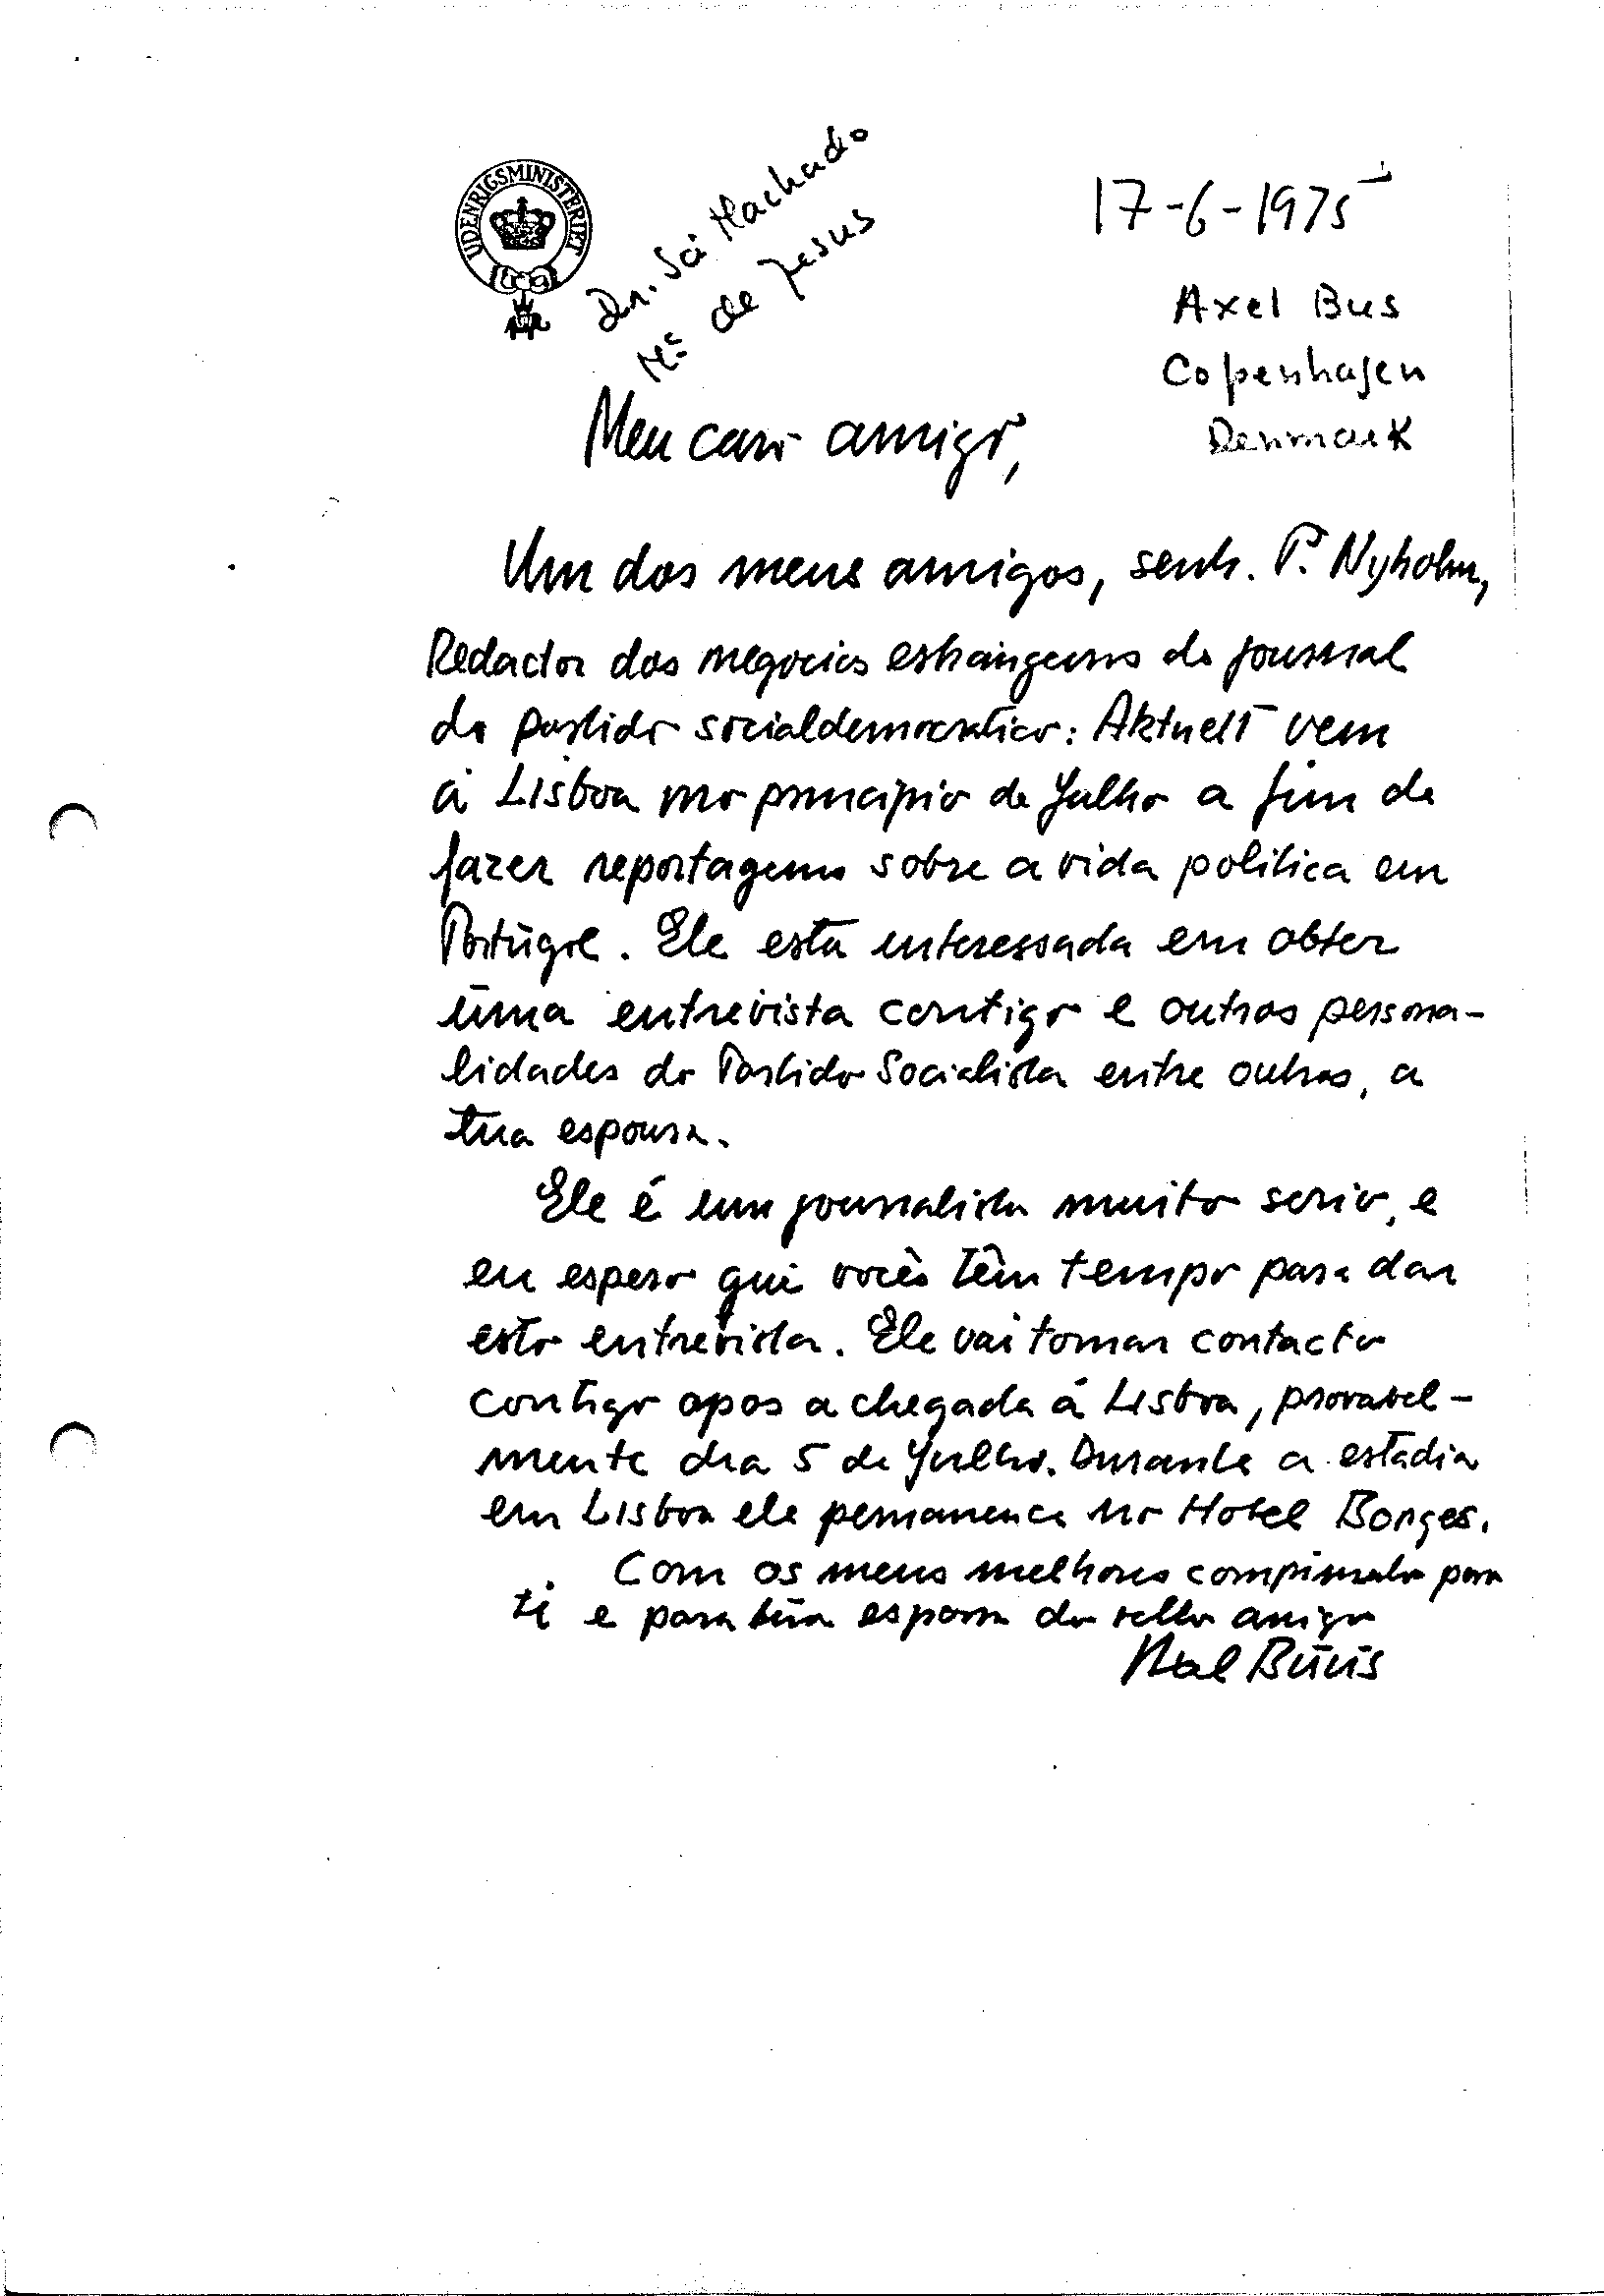 UDENRIGSMINISTERIET
Dr. Sá Machado
Mª de Jesus
17-6-1975
Axel Bus
Copenhagen
Denmark
Meu caro amigo,
Um dos meus amigos, senh. P. Nyholm,
Redactor dos negocios estrangeiros do journal
do partido socialdemocratico: Aktuelt vem
á Lisboa no principio de Julho a fim de
fazer reportagens sobre a vida politica em
Portugal. Ele esta interessada em obter
uma entrevista contigo e outras persona-
lidades do Partido Socialista entre outras, a
tua espousa.
Ele é um journalista muito serio, e
eu espero que vocês têm tempo para dar
esta entrevista. Ele vai tomar contacto
contigo apos a chegada á Lisboa, provabel-
mente dia 5 de Julho. Durante a estadia
em Lisboa ele permanence no Hotel Borges.
Com os meus melhores para
ti e para tua esposa do velho amigo
Axel Buus